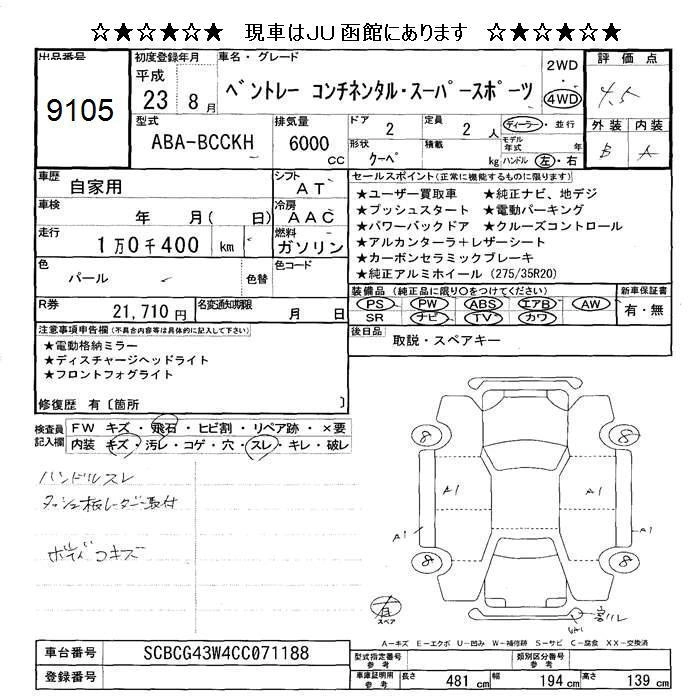 ☆★☆★☆★ 現車はＪＵ函館にあります ☆★☆★☆★
出品番号
9105
初度登録年月
平成
23 8月
車名・グレード
ベントレー コンチネンタル・スーパースポーツ
2WD
・
4WD
評価点
4.5
外装 内装
B A
型式
ABA-BCCKH
排気量
6000
CC
ドア
2
定員
2 人
ディーラー・並行
形状
クーペ
積載
kg
モデル年式 年
ハンドル 左・右
車歴
自家用
シフト
AT
車検
年 月( 日)
冷房
AAC
走行
1万0千400 km
燃料
ガソリン
色
パール
色替
色コード
R券
21,710円
名変通知期限
月 日
セールスポイント(正常に機能するものに限ります)
★ユーザー買取車 ★純正ナビ、地デジ
★プッシュスタート ★電動パーキング
★パワーバックドア ★クルーズコントロール
★アルカンターラ+レザーシート
★カーボンセラミックブレーキ
★純正アルミホイール(275/35R20)
装備品(純正品に限り○をつけてください)
PS PW ABS エアB AW
SR ナビ TV カワ
新車保証書
有・無
後日品
取説・スペアキー
注意事項申告欄(不具合内容等は具体的に記入して下さい)
★電動格納ミラー
★ディスチャージヘッドライト
★フロントフォグライト
修復歴 有〔箇所 〕
検査員記入欄
FW キズ・飛石・ヒビ割・リペア跡・×要
内装 キズ・汚レ・コゲ・穴・スレ・キレ・破レ
ハンドルスレ
ダッシュ板レーダー取付
ボディコキズ
8 8
A1 A1
A1 A1
8 8
スペア
A-キズ E-エクボ U-凹み W-補修跡 S-サビ C-腐食 XX-交換済
車台番号
SCBCG43W4CC071188
登録番号
型式指定番号
参考
類別区分番号
参考
車庫証明用
参考
長さ 481 cm
幅 194 cm
高さ 139 cm